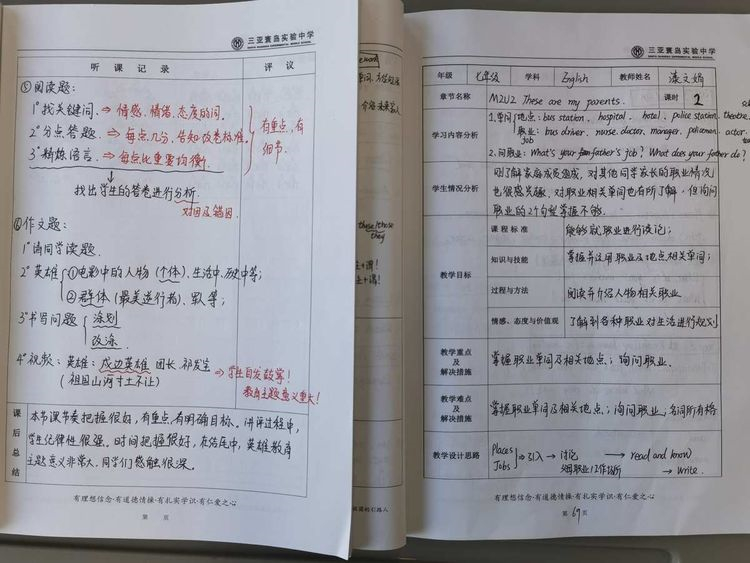 三亚寰岛实验中学
SANYA HUANDAO EXPERIMENTAL MIDDLE SCHOOL
听课记录
评议
⑤阅读题:
1°找关键词 ⇒ 情感、情绪、态度的词.
2°分点答题 ⇒ 每点几分,告知改卷标准.
3°精炼语言 ⇒ 每点比重要均衡.
有重点,有
细节.
找出学生的答卷进行分析.
对因及错因.
⑥作文题:
1°请同学读题.
2°英雄 ①电影中的人物(个体)、生活中、历史中等;
②群体(最美逆行者)、军人等;
3°书写问题 涂划
改涂.
4°视频:英雄:戍边英雄 团长 祁发宝
(祖国山河寸土不让)
⇒学生自发鼓掌!
教育主题意义重大!
课后总结
本节课节奏把握很好,有重点,有明确目标。讲评过程中,
学生纪律性很强。时间把握很好,在结尾中,英雄教育
主题意义非常大,同学们感触很深。
有理想信念·有道德情操·有扎实学识·有仁爱之心
第 页
these/those
they
三亚寰岛实验中学
SANYA HUANDAO EXPERIMENTAL MIDDLE SCHOOL
年级 七年级 学科 English 教师姓名
章节名称 M2U2 These are my parents. 课时 2
学习内容分析
1.单词 地点:bus station, hospital, hotel, police station, theatre,
职业:bus driver, nurse, doctor, manager, policeman, actor
2.问职业:What's your father's job? What does your father do?
学生情况分析
刚了解家庭成员组成,对其他同学家长的职业情况
也很感兴趣,对职业相关单词也有所了解,但询问
职业的2个句型掌握不够.
教学目标
课程标准 能够就职业进行谈论;
知识与技能 掌握并运用职业及地点相关单词;
过程与方法 阅读并介绍人物相关职业
情感、态度与价值观 了解到各种职业对生活进行规划
教学重点及解决措施 掌握职业单词及相关地点;询问职业.
教学难点及解决措施 掌握职业单词及相关地点;询问职业;名词所有格
教学设计思路
Places
Jobs ⇒引入→讨论 → read and know
职业工作场所 → write.
有理想信念·有道德情操·有扎实学识·有仁爱之心
第 69 页